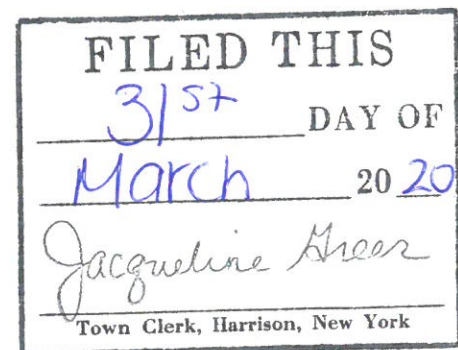 FILED THIS
31st DAY OF
March 20 20
Jacqueline Greer
Town Clerk, Harrison, New York